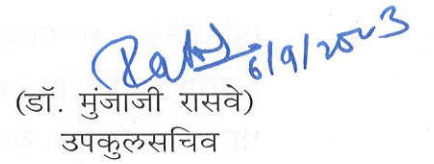 6/9/2023
(डॉ. मुंजाजी रासवे)
उपकुलसचिव